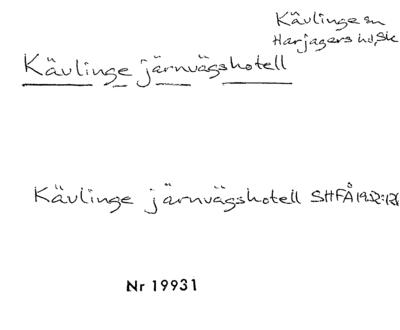 Kävlinge sn
Harjagers hd, Sk
Kävlinge järnvägshotell
Kävlinge järnvägshotell SHFÅ 1952:
Nr 19931